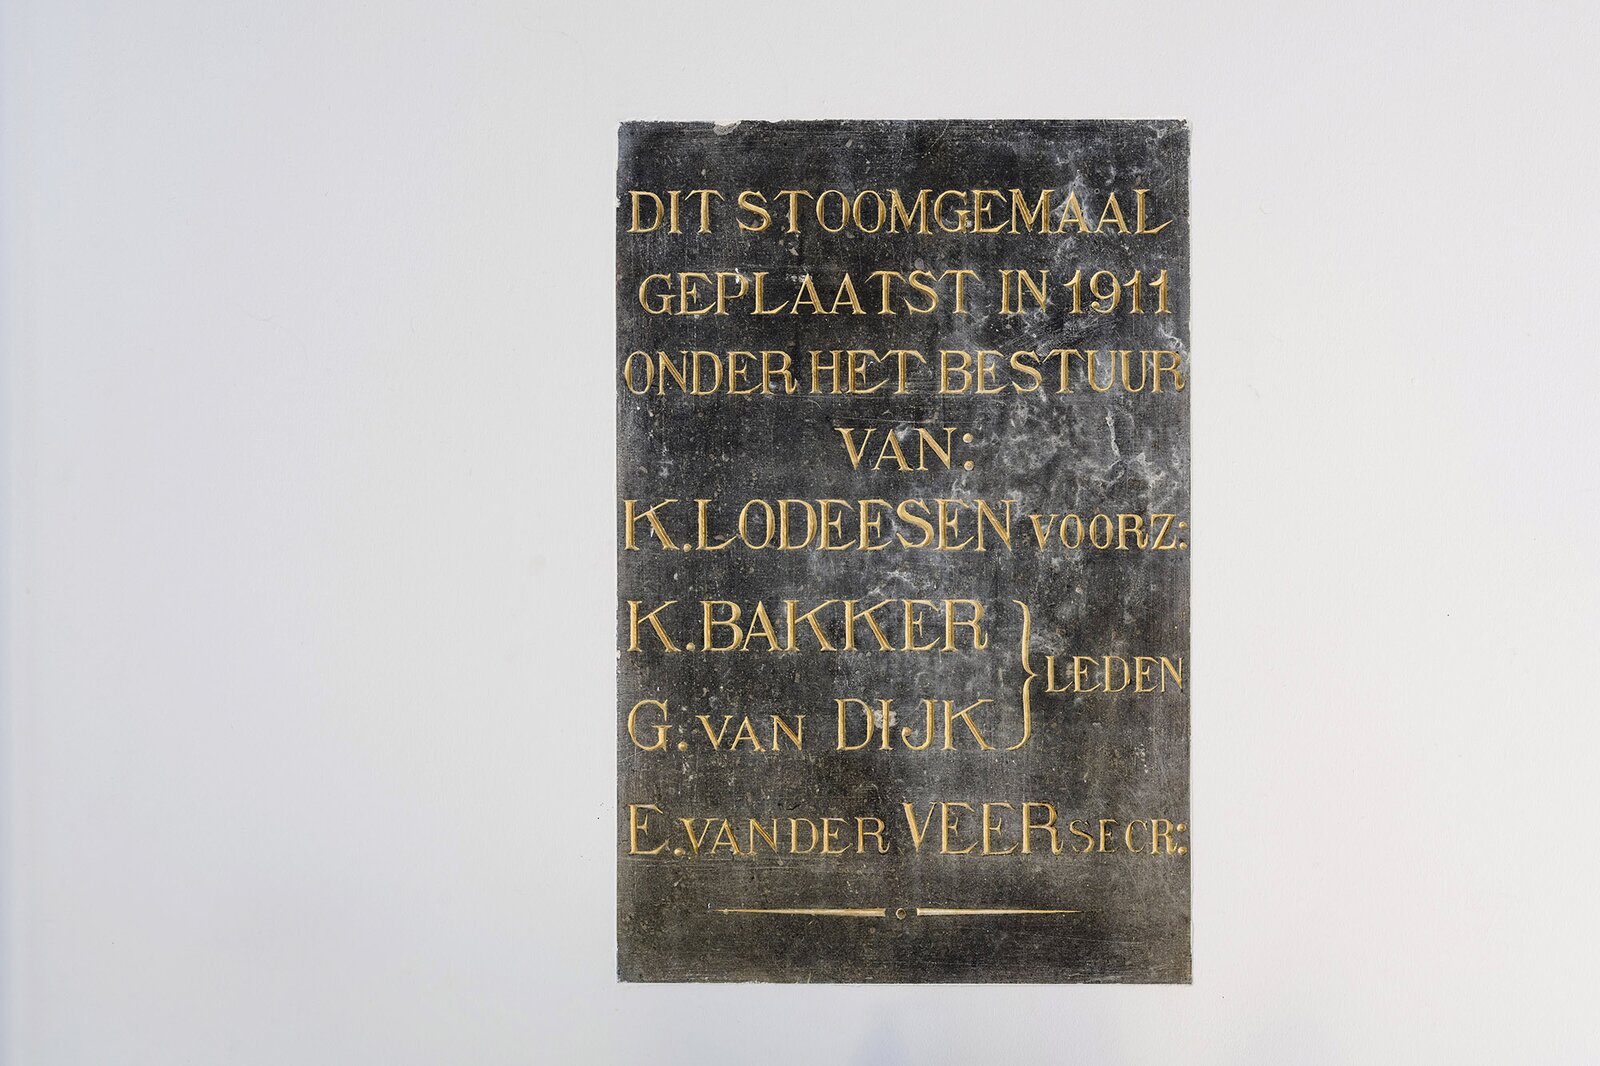 DIT STOOMGEMAAL
GEPLAATST IN 1911
ONDER HET BESTUUR
VAN:
K. LODEESEN VOORZ:
K. BAKKER
G. VAN DIJK } LEDEN
E. VAN DER VEER SECR: